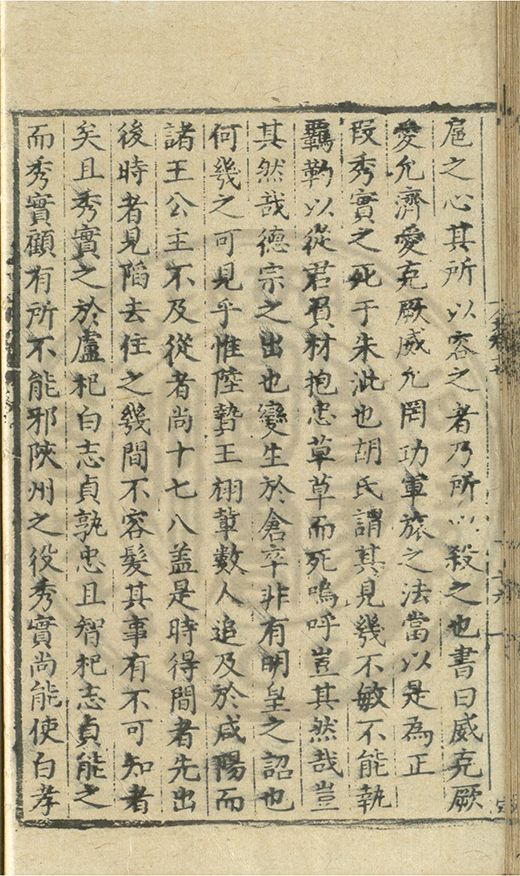 扈之心其所以容之者乃所以殺之也書曰威克厥
愛允濟愛克厥威允罔功軍旅之法當以是為正
段秀實之死于朱泚也胡氏謂其見幾不敏不能執
羈靮以從君負材抱忠草草而死嗚呼豈其然哉豈
其然哉德宗之出也變生於倉卒非有明皇之詔也
何幾之可見乎惟陸贄王翃輩數人追及於咸陽而
諸王公主不及從者尚十七八盖是時得間者先出
後時者見陷去住之幾間不容髮其事有不可知者
矣且秀實之於盧杞白志貞孰忠且智杞志貞能之
而秀實顧有所不能邪陜州之役秀實尚能使白孝